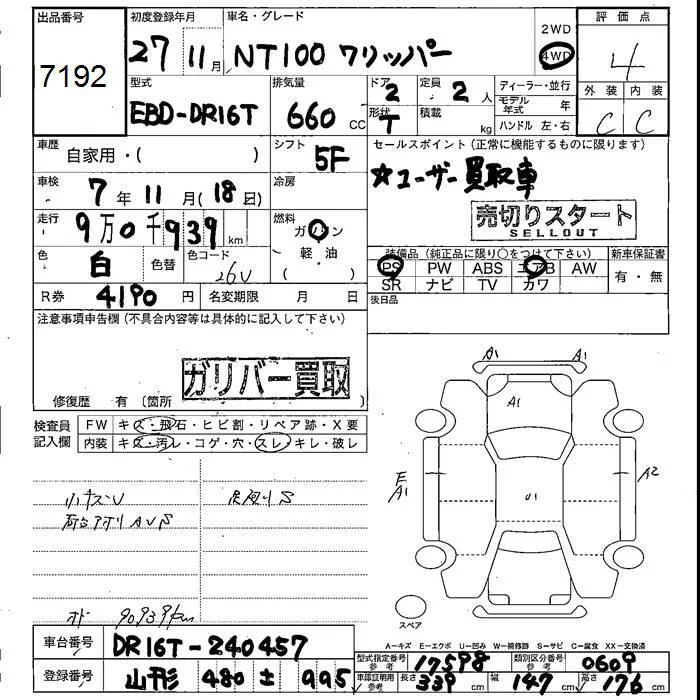 出品番号 初度登録年月 車名・グレード 2WD 4WD 評価点
7192 27 11月 NT100 クリッパー 4
型式 排気量 ドア 定員 ディーラー・並行 外装 内装
EBD-DR16T 660 CC 2 2人 モデル年式 年 C C
形状 T 積載 kg ハンドル 左・右
車歴 自家用・( ) シフト 5F セールスポイント(正常に機能するものに限ります)
車検 7年11月(18日) 冷房 ☆ユーザー買取車
走行 9万0千939km 燃料 ガソリン 軽・油 ( ) 売切りスタート
SELLOUT
色 白 色替 色コード 26U 装備品(純正品に限り○をつけて下さい) 新車保証書
PS PW ABS エアB AW 有・無
SR ナビ TV カワ
R券 4190円 名変期限 月 日 後日品
注意事項申告欄(不具合内容等は具体的に記入して下さい)
ガリバー買取
修復歴 有(箇所 )
検査員記入欄 FW キズ・飛石・ヒビ割・リペア跡・X要
内装 キズ・汚レ・コゲ・穴・スレ・キレ・破レ
A1 A1
A1
E
A1
U1
A2
小キズU
S
AUS
90939km
スペア
A=キズ E=エクボ U=凹み W=補修跡 S=サビ C=腐食 XX=交換済
車台番号 DR16T-240457
型式指定番号参考 17598 類別区分番号参考 0609
登録番号 山形 480 ま 995
車庫証明用参考 長さ 339cm 幅 147cm 高さ 176cm